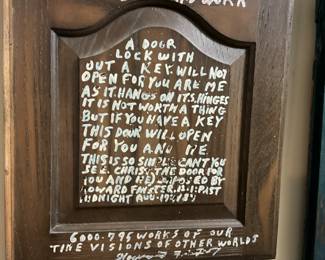 WORK
A DOOR
LOCK WITH
OUT A KEY WILL NOT
OPEN FOR YOU ARE ME
AS IT. HANGS ON IT,S, HINGES
IT IS NOT WORTH A THING
BUT IF YOU HAVE A KEY
THIS DOUR WILL OPEN
FOR YOU AND ME
THIS IS SO SIMPLE CANT YOU
SEE. CHRIST THE DOOR FOR
YOU AND ME BY
HOWARD FINSTER. PAST
MIDNIGHT AUG
6000.795 WORKS OF OUR
TIME VISIONS OF OTHER WORLDS